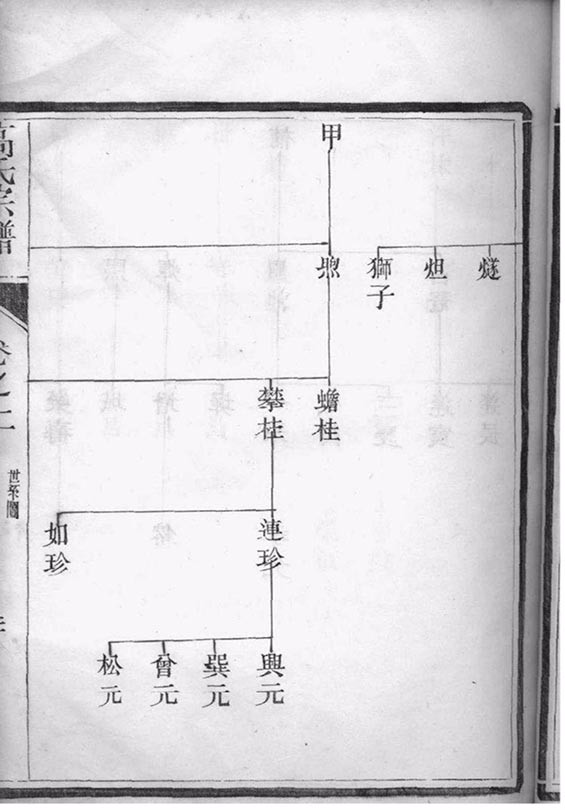 甲
燧
炟
獅子
蟾桂
攀桂
連珍
如珍
興元
巽元
曾元
松元
高氏宗譜
卷之二
世系圖